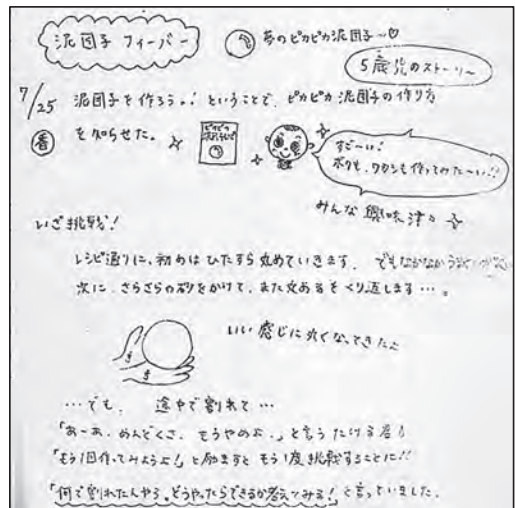 泥団子 フィーバー
夢のピカピカ泥団子～♡
5歳児のストーリー
7/25 泥団子を作ろう。! ということで、ピカピカ泥団子の作り方
を知らせた。
すご～い!
ボクも、ワタシも作ってみた～い!!
みんな 興味津々
いざ挑戦!
レシピ通りに、初めはひたすら丸めていきます. でもなかなか
次に、さらさらの砂をかけて、また丸めるをくり返します…。
いい感じに丸くなってきたよ
…でも、途中で割れて…
「あーあ.めんどくさ. もうやめよ.」と言う たける君!
「もう1回作ってみようよ!」と励ますと もう1度挑戦することに!!
「何で割れたんやろ。どうやったらできるか考えてみる!」と言っていました.